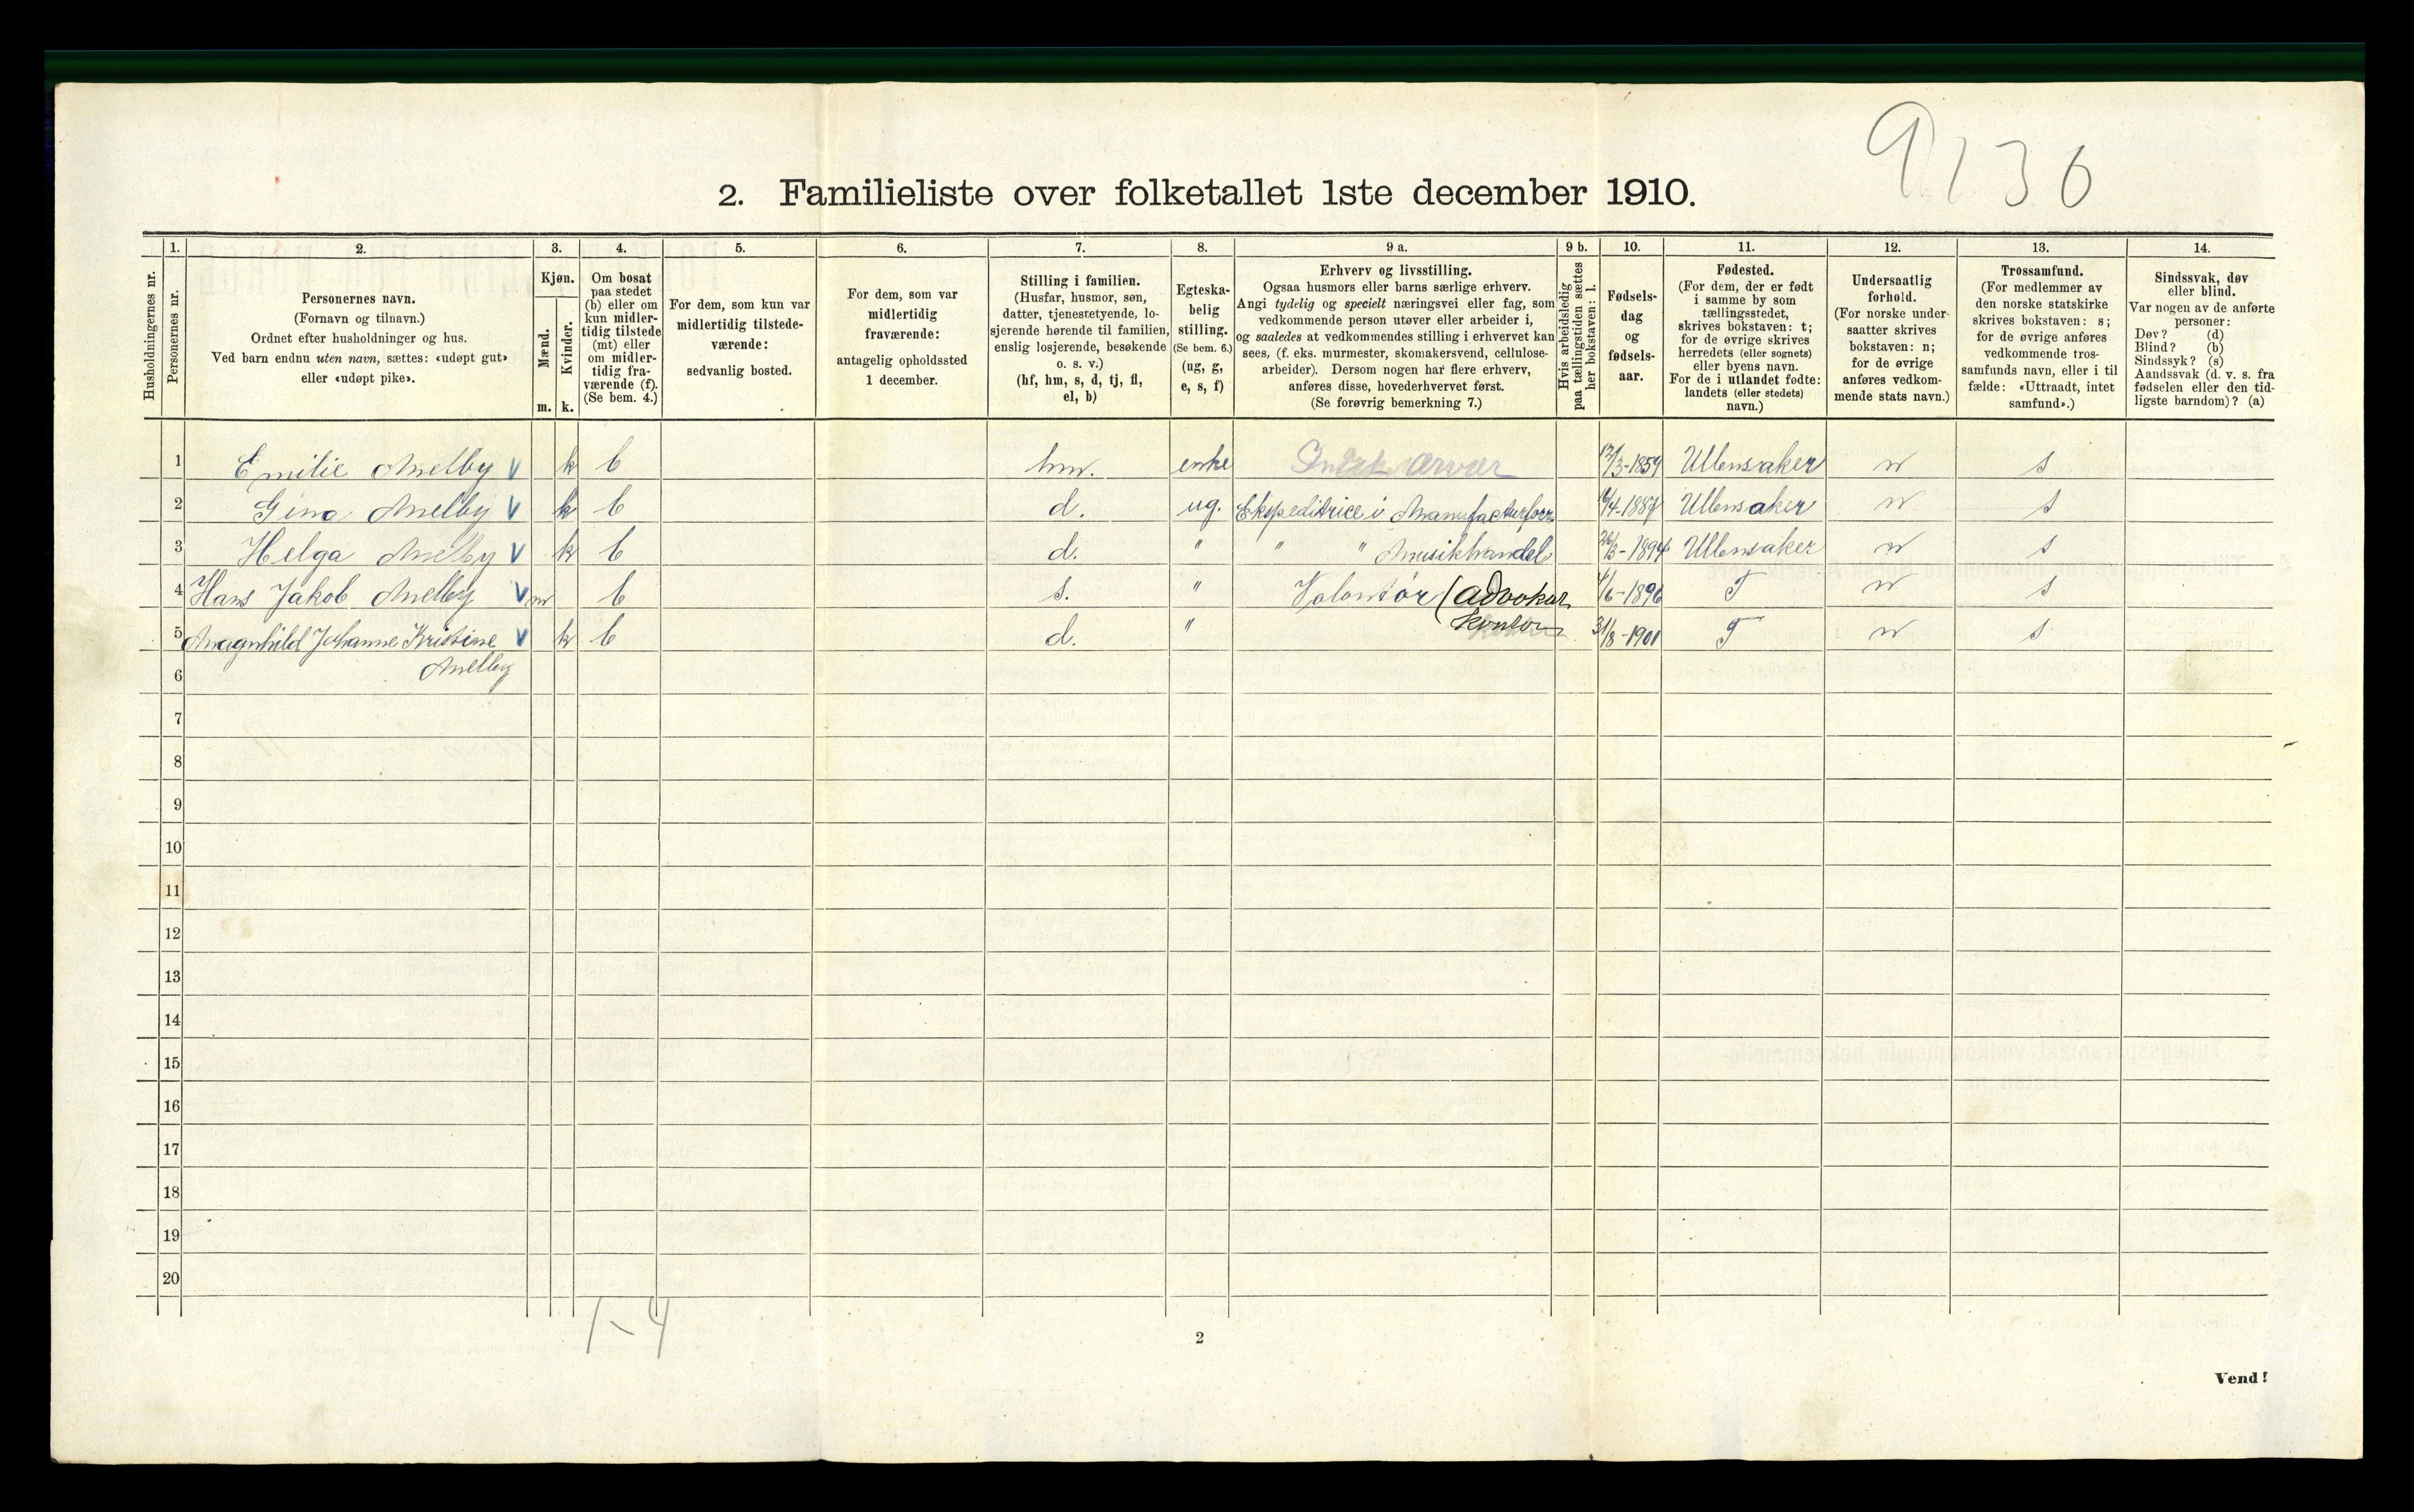 9130
2. Familieliste over folketallet 1ste december 1910.
Husholdningernes nr.
1. Personernes nr.
2. Personernes navn.
(Fornavn og tilnavn.)
Ordnet efter husholdninger og hus.
Ved barn endnu uten navn, sættes: «udøpt gut»
eller «udøpt pike».
3. Kjøn.
Mænd. m.
Kvinder. k.
4. Om bosat
paa stedet
(b) eller om
kun midler-
tidig tilstede
(mt) eller
om midler-
tidig fra-
værende (f).
(Se bem. 4.)
5. For dem, som kun var
midlertidig tilstede-
værende:
sedvanlig bosted.
6. For dem, som var
midlertidig
fraværende:
antagelig opholdssted
1 december.
7. Stilling i familien.
(Husfar, husmor, søn,
datter, tjenestetyende, lo-
sjerende hørende til familien,
enslig losjerende, besøkende
o. s. v.)
(hf, hm, s, d, tj, fl,
el, b)
8. Egteska-
belig
stilling.
(Se bem. 6.)
(ug, g,
e, s, f)
9 a. Erhverv og livsstilling.
Ogsaa husmors eller barns særlige erhverv.
Angi tydelig og specielt næringsvei eller fag, som
vedkommende person utøver eller arbeider i,
og saaledes at vedkommendes stilling i erhvervet kan
sees, (f. eks. murmester, skomakersvend, cellulose-
arbeider). Dersom nogen har flere erhverv,
anføres disse, hovederhvervet først.
(Se forøvrig bemerkning 7.)
9 b. Hvis arbeidsledig
paa tællingstiden sættes
her bokstaven: l.
10. Fødsels-
dag
og
fødsels-
aar.
11. Fødested.
(For dem, der er født
i samme by som
tællingsstedet,
skrives bokstaven: t;
for de øvrige skrives
herredets (eller sognets)
eller byens navn.
For de i utlandet fødte:
landets (eller stedets)
navn.)
12. Undersaatlig
forhold.
(For norske under-
saatter skrives
bokstaven: n;
for de øvrige
anføres vedkom-
mende stats navn.)
13. Trossamfund.
(For medlemmer av
den norske statskirke
skrives bokstaven: s;
for de øvrige anføres
vedkommende tros-
samfunds navn, eller i til
fælde: «Uttraadt, intet
samfund».)
14. Sindssvak, døv
eller blind.
Var nogen av de anførte
personer:
Døv? (d)
Blind? (b)
Sindssyk? (s)
Aandssvak (d. v. s. fra
fødselen eller den tid-
ligste barndom)? (a)
1 Emilie Melby V k b hm. enke 12/3-1859 Ullensaker n s
2 Gina Melby V k b d. ug. Ekspeditrice i Manufacturforr. 16/4-1887 Ullensaker n s
3 Helga Melby V k b d. " " " Musikhandel 26/3-1894 Ullensaker n s
4 Hans Jakob Melby V m b s. " Volontør (advokat 4/6-1896 T n s
kontor
5 Magnhild Johanne Kristine V k b d. " 31/8-1901 T n s
Melby
6
7
8
9
10
11
12
13
14
15
16
17
18
19
20
1-4
2
Vend!